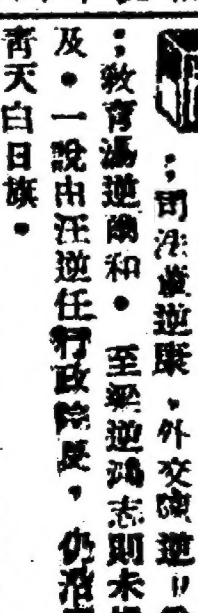 ：司法董逆康，外交陳逆
：教育湯逆爾和．至梁逆鴻志則未
及．一說由汪逆任行政院長，仍沿
青天白日旗．